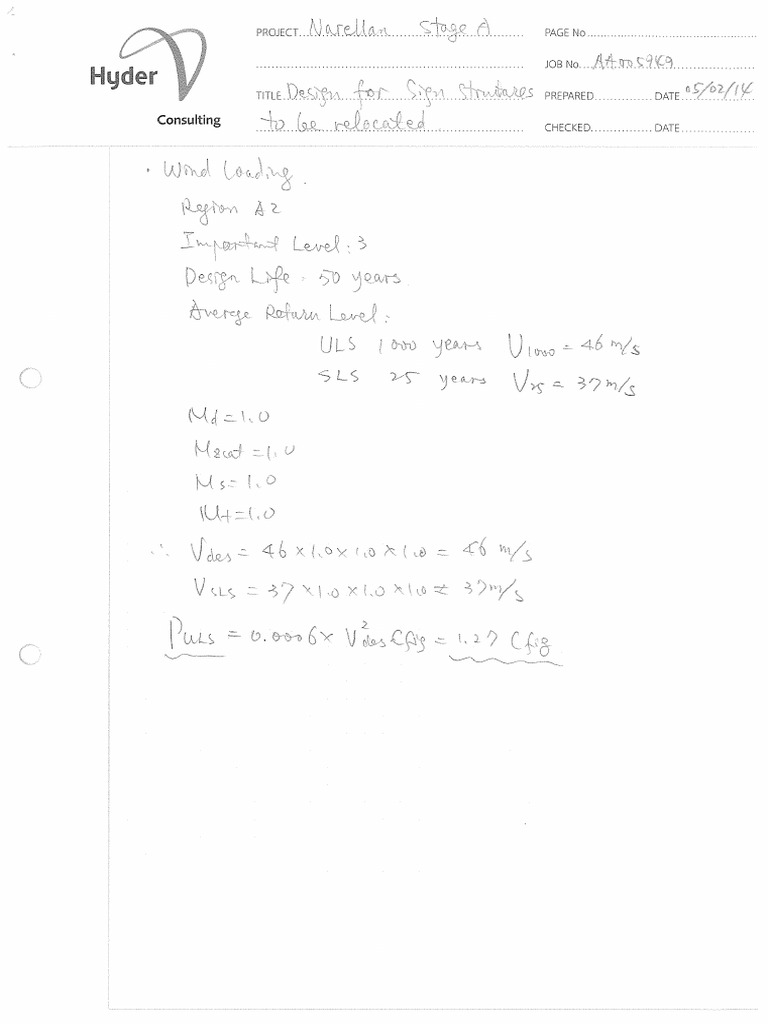 Hyder
Consulting
PROJECT Narellan Stage A
PAGE No
JOB No. AA005949
TITLE Design for Sign Strutures
to be relocated
PREPARED DATE 05/02/14
CHECKED DATE
· Wind Loading.
Region A2
Important Level: 3
Design Life = 50 years
Average Return Level:
ULS 1000 years V1000 = 46 m/s
SLS 25 years V25 = 37 m/s
Md=1.0
Mzcat =1.0
Ms=1.0
Mt=1.0
∴ Vdes = 46 × 1.0 × 1.0 × 1.0 = 46 m/s
VSLS = 37 × 1.0 × 1.0 × 1.0 = 37 m/s
PULS = 0.0006 × V²des Cfig = 1.27 Cfig